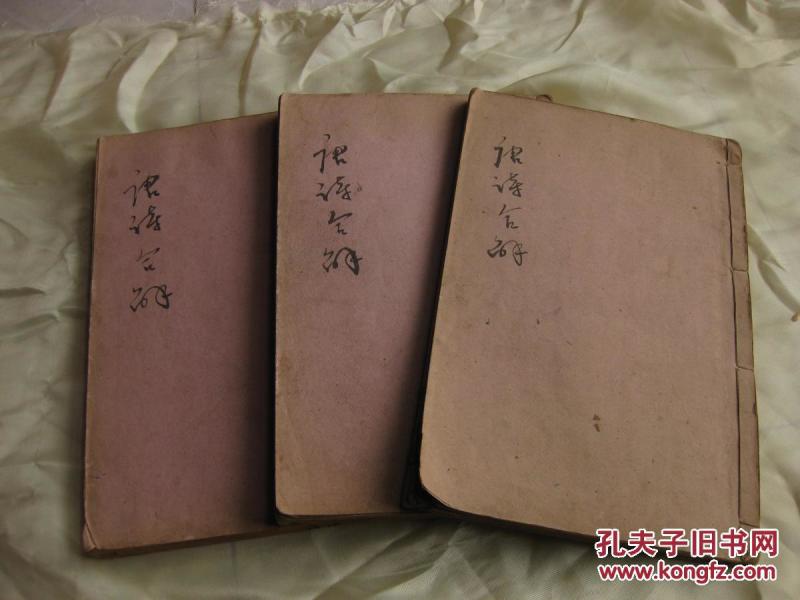 唐诗合解
唐诗合解
唐诗合解
孔夫子旧书网
www.kongfz.com